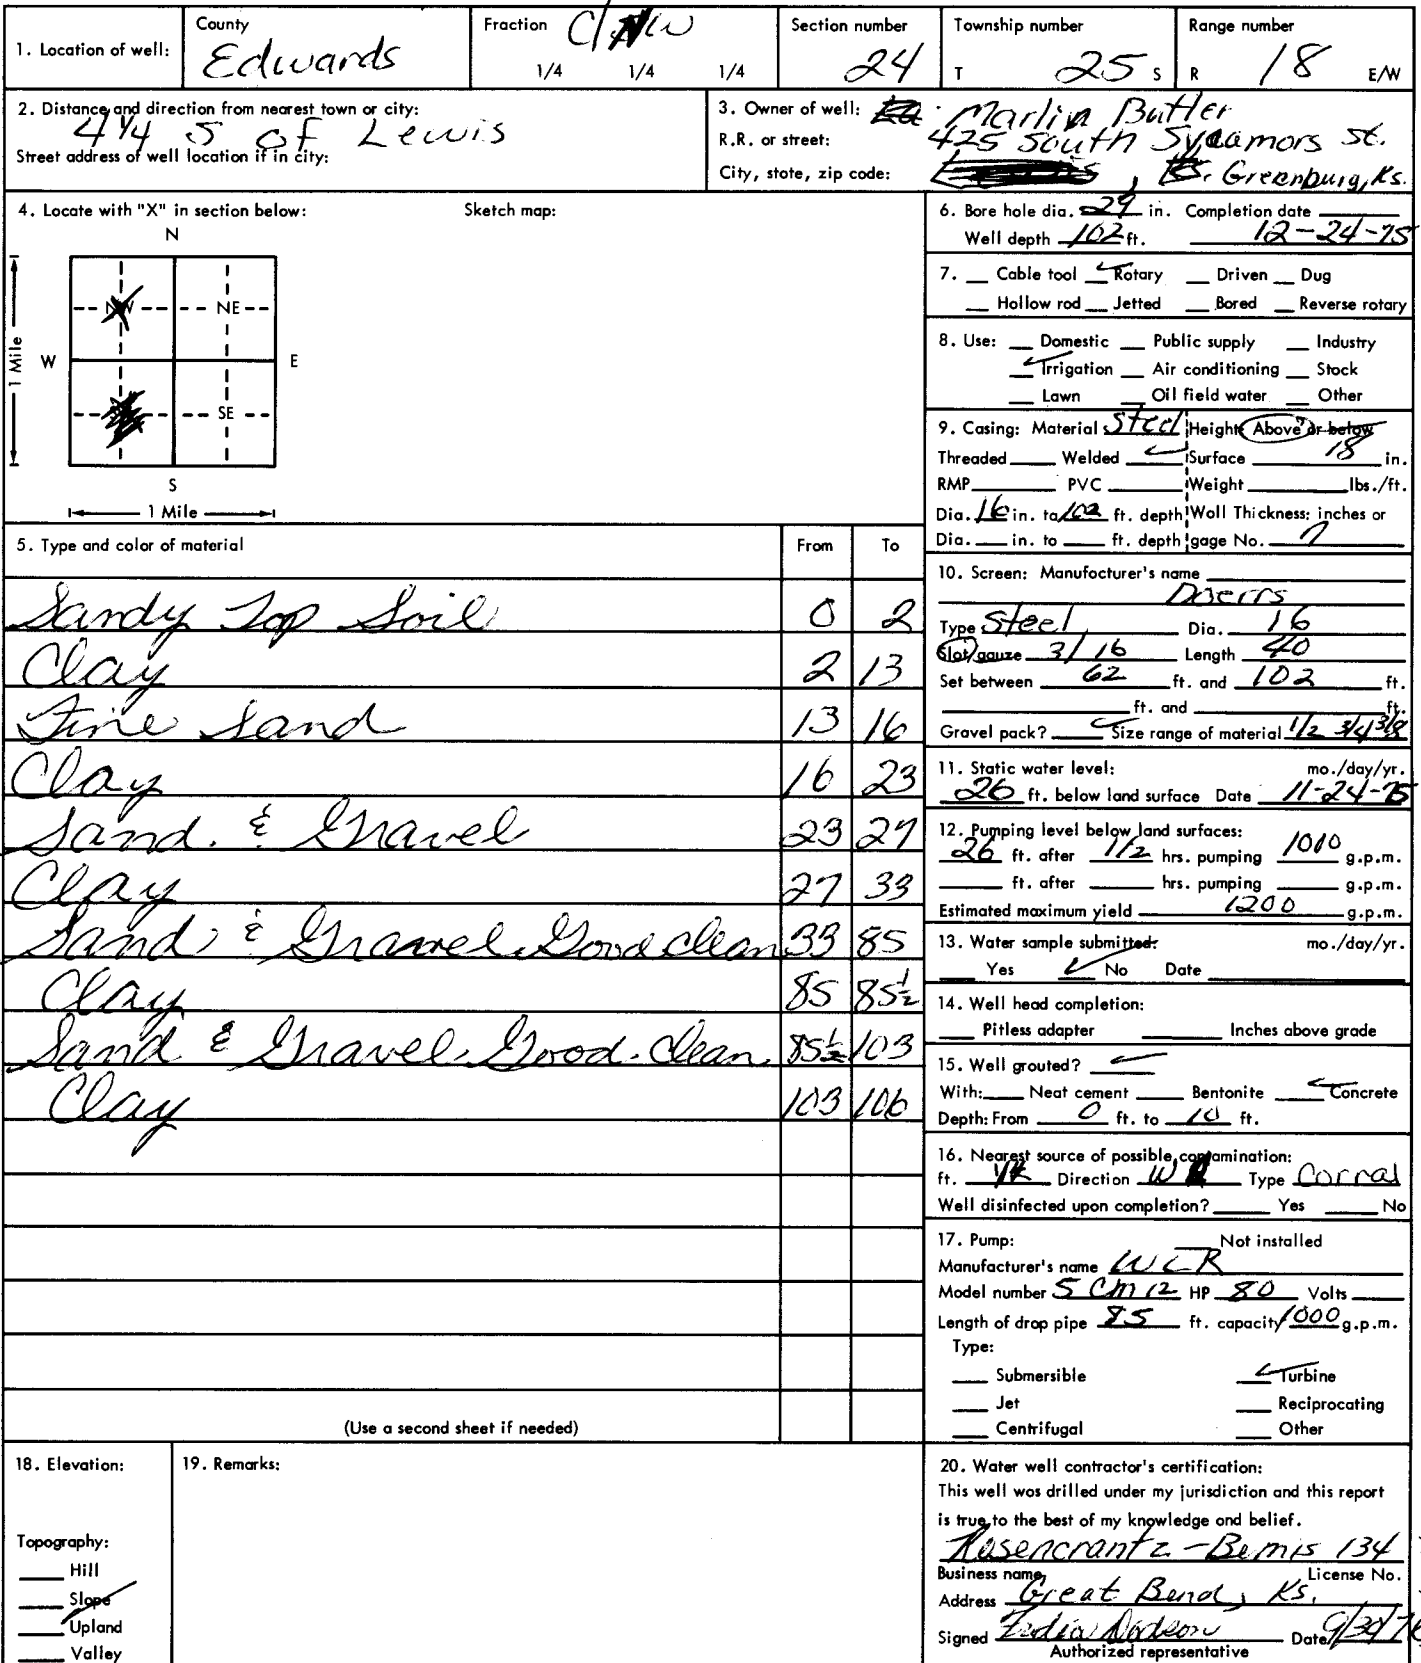 1. Location of well: County Edwards Fraction C NW 1/4 1/4 1/4 Section number 24 Township number T 25 S Range number R 18 E/W
2. Distance and direction from nearest town or city: 4 1/4 S of Lewis
Street address of well location if in city:
3. Owner of well: Marlin Butler
R.R. or street: 425 South Sycamors St.
City, state, zip code: Greenburg, Ks.
4. Locate with "X" in section below: Sketch map:
N
NW NE
W E
1 Mile
SE
S
1 Mile
5. Type and color of material From To
Sandy Top Soil 0 2
Clay 2 13
Fine Sand 13 16
Clay 16 23
Sand & Gravel 23 27
Clay 27 33
Sand & Gravel Good clean 33 85
Clay 85 85 1/2
Sand & Gravel Good clean 85 1/2 103
Clay 103 106
(Use a second sheet if needed)
6. Bore hole dia. 29 in. Completion date
Well depth 102 ft. 12-24-75
7. Cable tool Rotary Driven Dug
Hollow rod Jetted Bored Reverse rotary
8. Use: Domestic Public supply Industry
Irrigation Air conditioning Stock
Lawn Oil field water Other
9. Casing: Material Steel Height: Above or below
Threaded Welded Surface 18 in.
RMP PVC Weight lbs./ft.
Dia. 16 in. to 102 ft. depth Wall Thickness: inches or
Dia. in. to ft. depth gage No. 7
10. Screen: Manufacturer's name
Doerrs
Type Steel Dia. 16
Slot/gauze 3/16 Length 40
Set between 62 ft. and 102 ft.
ft. and ft.
Gravel pack? Size range of material 1/2 3/4 3/8
11. Static water level: mo./day/yr.
26 ft. below land surface Date 11-24-75
12. Pumping level below land surfaces:
26 ft. after 1/2 hrs. pumping 1010 g.p.m.
ft. after hrs. pumping g.p.m.
Estimated maximum yield 1200 g.p.m.
13. Water sample submitted: mo./day/yr.
Yes No Date
14. Well head completion:
Pitless adapter Inches above grade
15. Well grouted?
With: Neat cement Bentonite Concrete
Depth: From 0 ft. to 10 ft.
16. Nearest source of possible contamination:
ft. Direction W Type Corral
Well disinfected upon completion? Yes No
17. Pump: Not installed
Manufacturer's name WLR
Model number 5 CM 12 HP 80 Volts
Length of drop pipe 85 ft. capacity 1000 g.p.m.
Type:
Submersible Turbine
Jet Reciprocating
Centrifugal Other
18. Elevation:
Topography:
Hill
Slope
Upland
Valley
19. Remarks:
20. Water well contractor's certification:
This well was drilled under my jurisdiction and this report
is true to the best of my knowledge and belief.
Rosencrantz-Bemis 134
Business name License No.
Address Great Bend, Ks.
Signed Dodson Date 9/30/76
Authorized representative